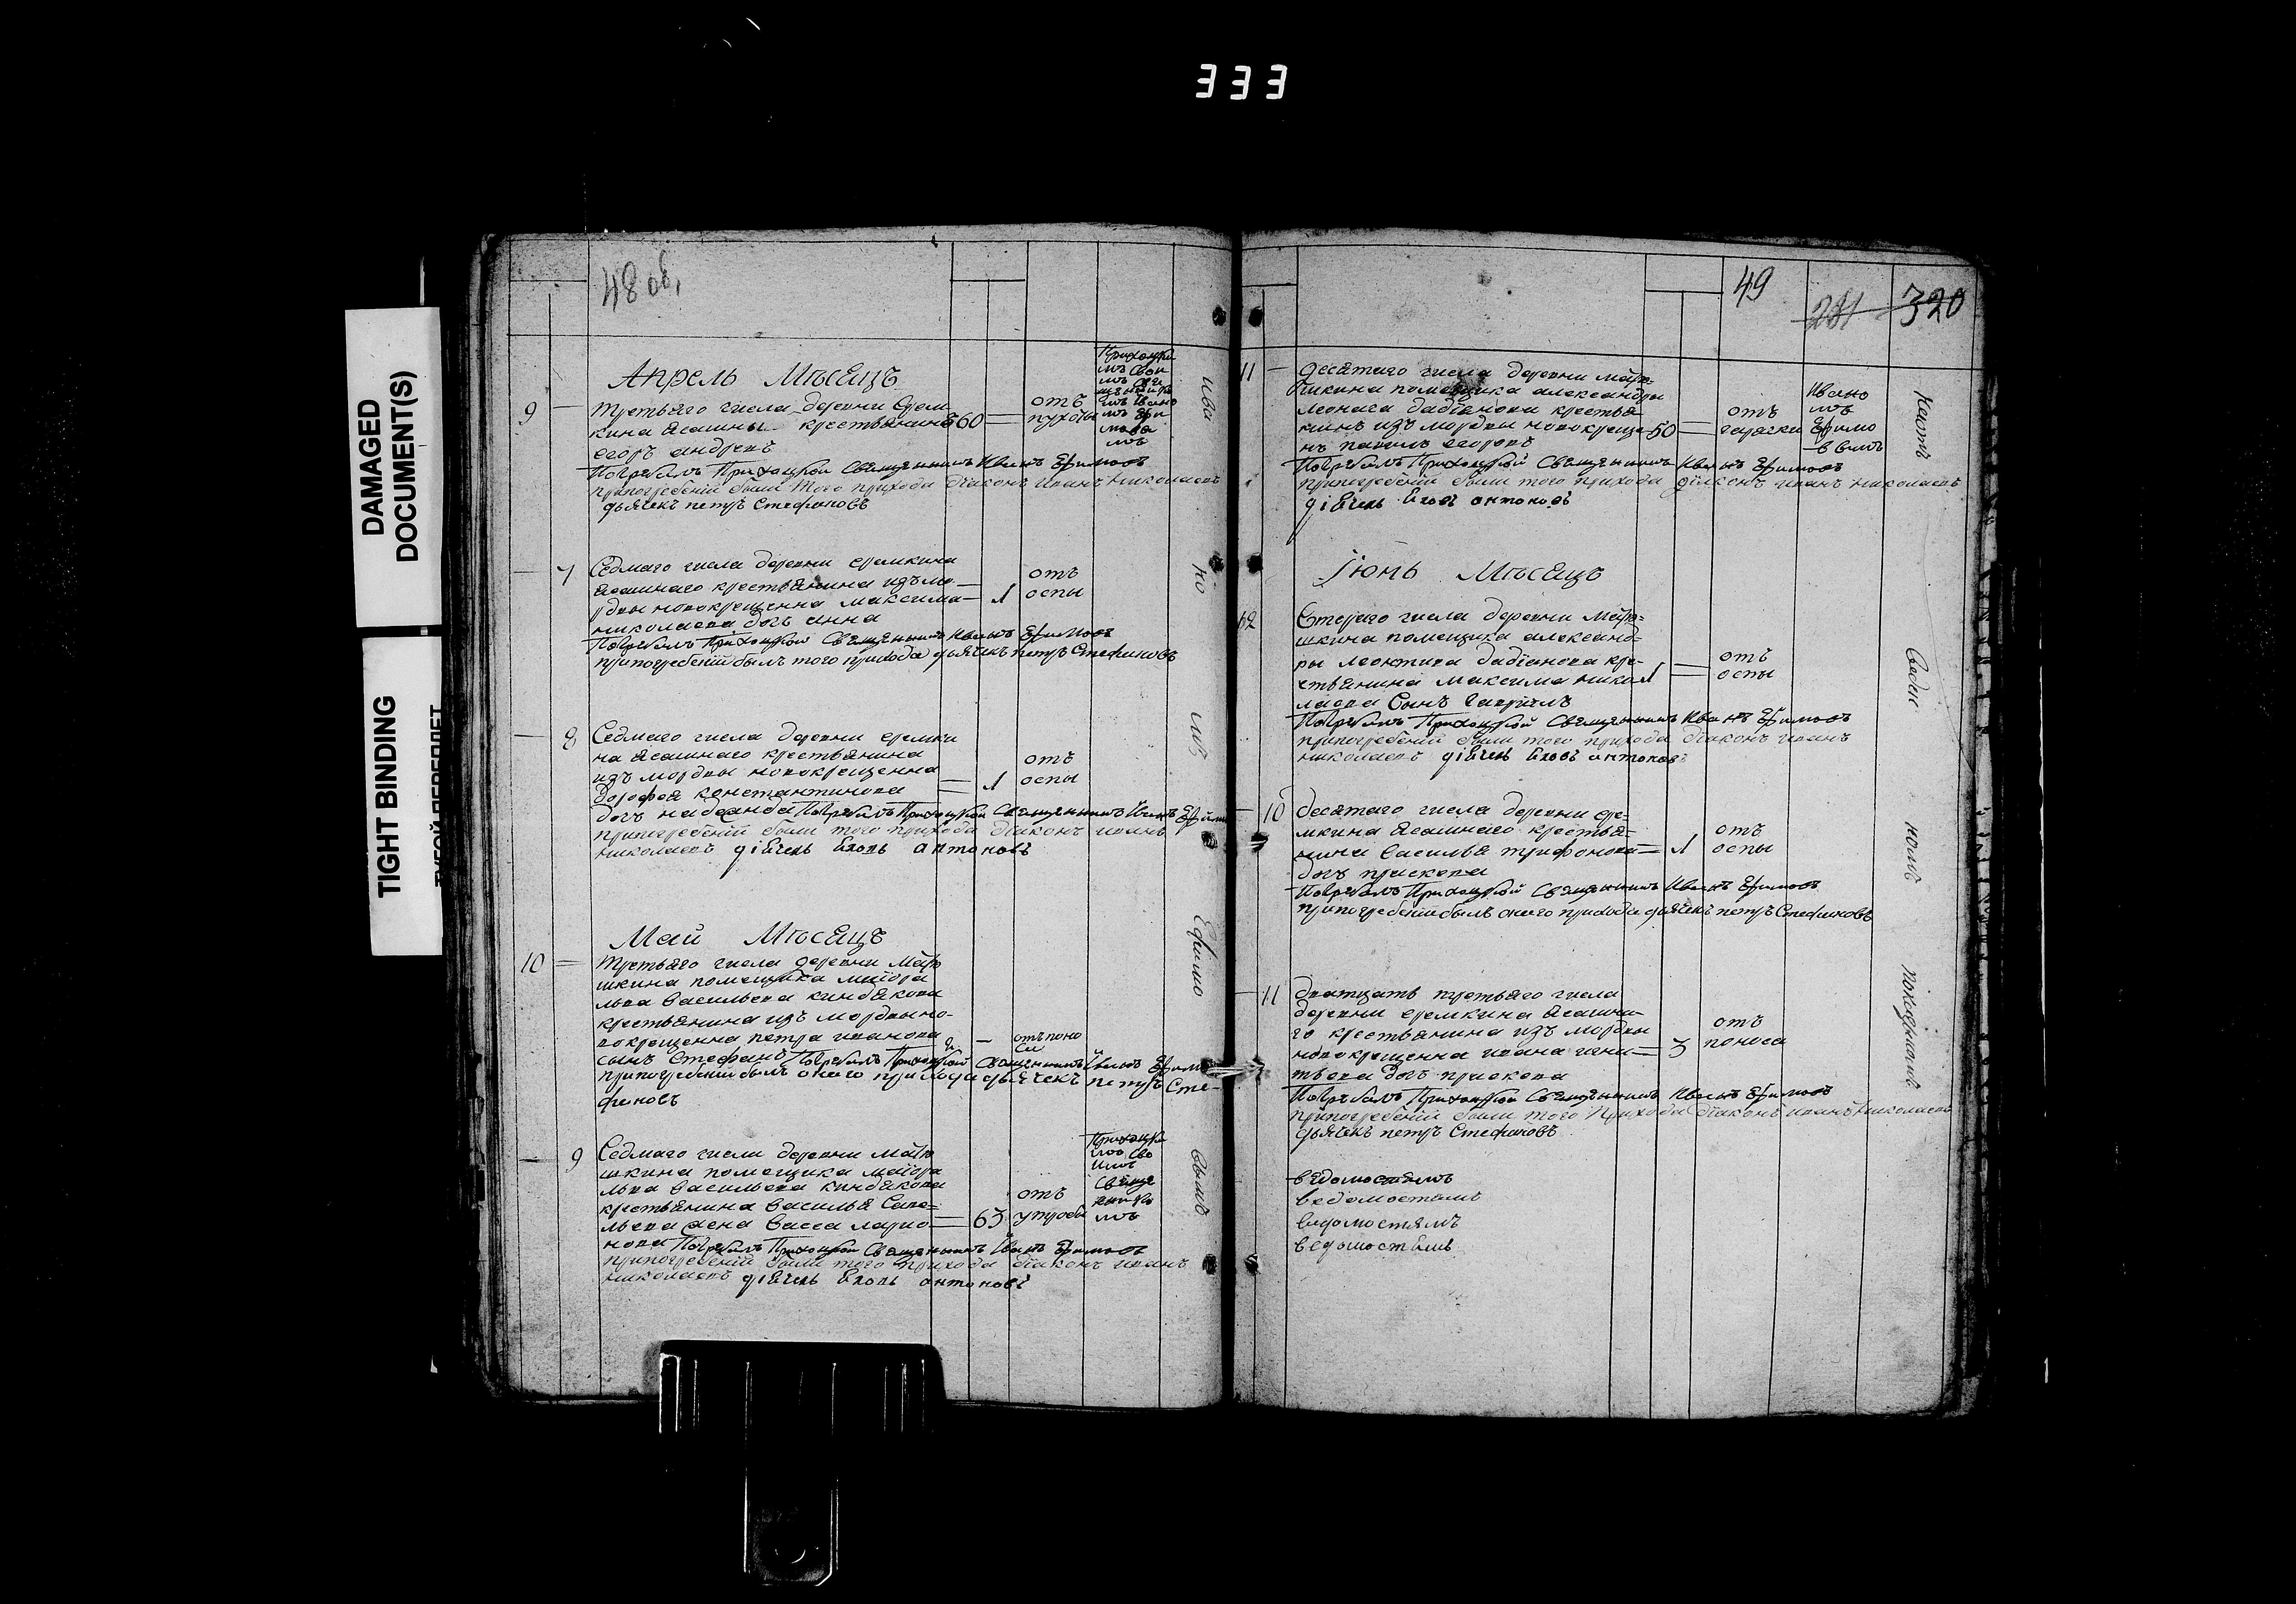 333
DAMAGED
DOCUMENT(S)
TIGHT BINDING
48 об,
Апрель Мѣсецъ
9
третьяго числа деревни Ерем-
кина ясашны крестьянинъ 60
егоръ андреевъ
отъ
пухоты
Погребалъ Приходцкой Священникъ Иванъ Ефимовъ
припогребеніи были того прихода діаконъ иванъ николаевъ
дьячекъ петръ Стефановъ
7
Седмаго числа деревни еремкина
ясашнаго крестьянина изъ мо-
рдвы новокрещенна максима 1
николаева дочь анна
отъ
оспы
Погребалъ Приходцкой Священникъ Иванъ Ефимовъ
припогребеніи былъ того прихода дьячекъ петръ Стефановъ
8
Седмаго числа деревни еремки
на ясашнаго крестьянина
изъ мордвы новокрещенна
дорофея константинова 1
отъ
оспы
дочь надежда Погребалъ Приходцкой Священникъ Иванъ Ефимо
припогребеніи были того прихода діаконъ иванъ
николаевъ діячекъ яковъ антоновъ
Май Мѣсецъ
10
третьяго числа деревни матю
шкина помещика маіора
льва васильева киндякова
крестьянина изъ мордвы но-
вокрещенна петра иванова 2
отъ поно
са
сынъ Стефанъ Погребалъ Приходцкой Священникъ Иванъ Ефимо
припогребеніи былъ онаго прихода дьячекъ петръ Сте-
фановъ
9
Седмаго числа деревни матю
шкина помещика маіора
льва васильева киндякова
крестьянина василья Саве-
льева жена васса ларио- 63
отъ
утробы
нова Погребалъ Приходцкой Священникъ Иванъ Ефимовъ
припогребеніи были того прихода діаконъ иванъ
николаевъ діячекъ яковъ антоновъ
Ива
но
Ефимо
вымъ
49
281 320
11
десятаго числа деревни матю-
шкина помещика александры
леонтьева дадіанова крестья
нинъ изъ мордвы новокреще 50
нъ павелъ егоровъ
отъ
горячки
Ивано
мъ
Ефимо
вымъ
Погребалъ Приходцкой Священникъ Иванъ Ефимовъ
припогребеніи были того прихода діаконъ иванъ николаевъ
діячекъ яковъ антоновъ
Іюнь Мѣсецъ
12
Втораго числа деревни матю-
шкина помещика александ-
ры леонтива дадіанова кре-
стьянина максима нико 1
лаева Сынъ гавриилъ
отъ
оспы
Погребалъ Приходцкой Священникъ Иванъ Ефимовъ
припогребеніи были того прихода діаконъ иванъ
николаевъ діячекъ яковъ антоновъ
10
десятаго числа деревни ере-
мкина ясашнаго крестья-
нина василья трифонова 1
дочь прасковя
отъ
оспы
Погребалъ Приходцкой Священникъ Иванъ Ефимовъ
припогребеніи былъ онаго прихода дьячекъ петръ Стефановъ
11
дватцать третьяго числа
деревни еремкина ясашна-
го крестьянина изъ мордвы
новокрещенна ивана игна- 3
тьева дочь прасковя
отъ
поноса
Погребалъ Приходцкой Священникъ Иванъ Ефимовъ
припогребеніи были того прихода діаконъ иванъ николаевъ
дьячекъ петръ Стефановъ
ведомостямъ
ведомостямъ
ведомостямъ
ведомостямъ